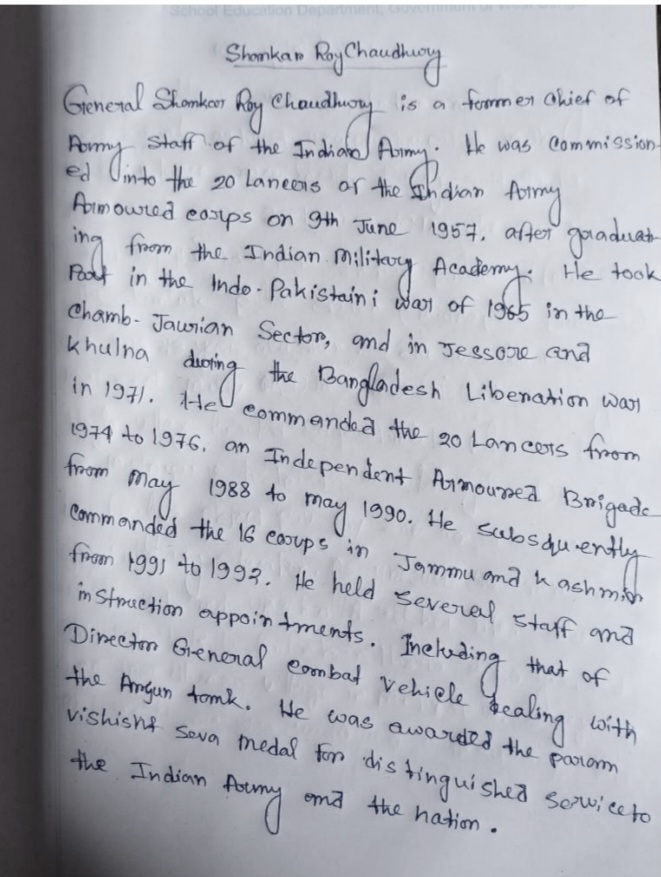 School Education Department, Government of West Beng
Shankar RoyChaudhury
General Shankar Roy Chaudhury is a former chief of
Army staff of the Indian Army. He was commission-
ed into the 20 Lancers of the Indian Army
Armoured corps on 9th June 1957, after graduat-
ing from the Indian military Academy. He took
Part in the Indo-Pakistaini war of 1965 in the
Chamb-Jaurian Sector, and in Jessore and
Khulna during the Bangladesh Liberation war
in 1971. He commanded the 20 Lancers from
1974 to 1976, an Independent Armoured Brigade
from may 1988 to may 1990. He subsquently
commanded the 16 corps in Jammu and Kashmir
from 1991 to 1992. He held several staff and
instruction appointments. Including that of
Director General combat vehicle dealing with
the Argun tank. He was awarded the param
vishisht seva medal for distinguished service to
the Indian Army and the nation.